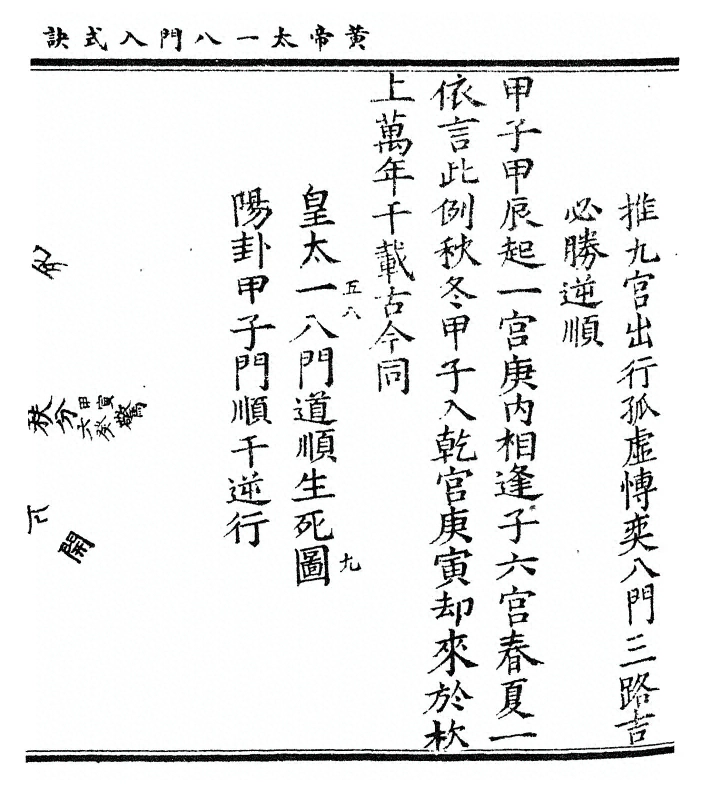 黃帝太一八門入式訣
推九宮出行孤虛慱奕八門三路吉
必勝逆順
甲子甲辰起一宮庚內相逢子六宮春夏一
依言此例秋冬甲子入乾宮庚寅却來於杴
上萬年千載古今同
皇太一八門道順生死圖
五八
九
陽卦甲子門順干逆行
驚
甲寅
六癸
秋分
開